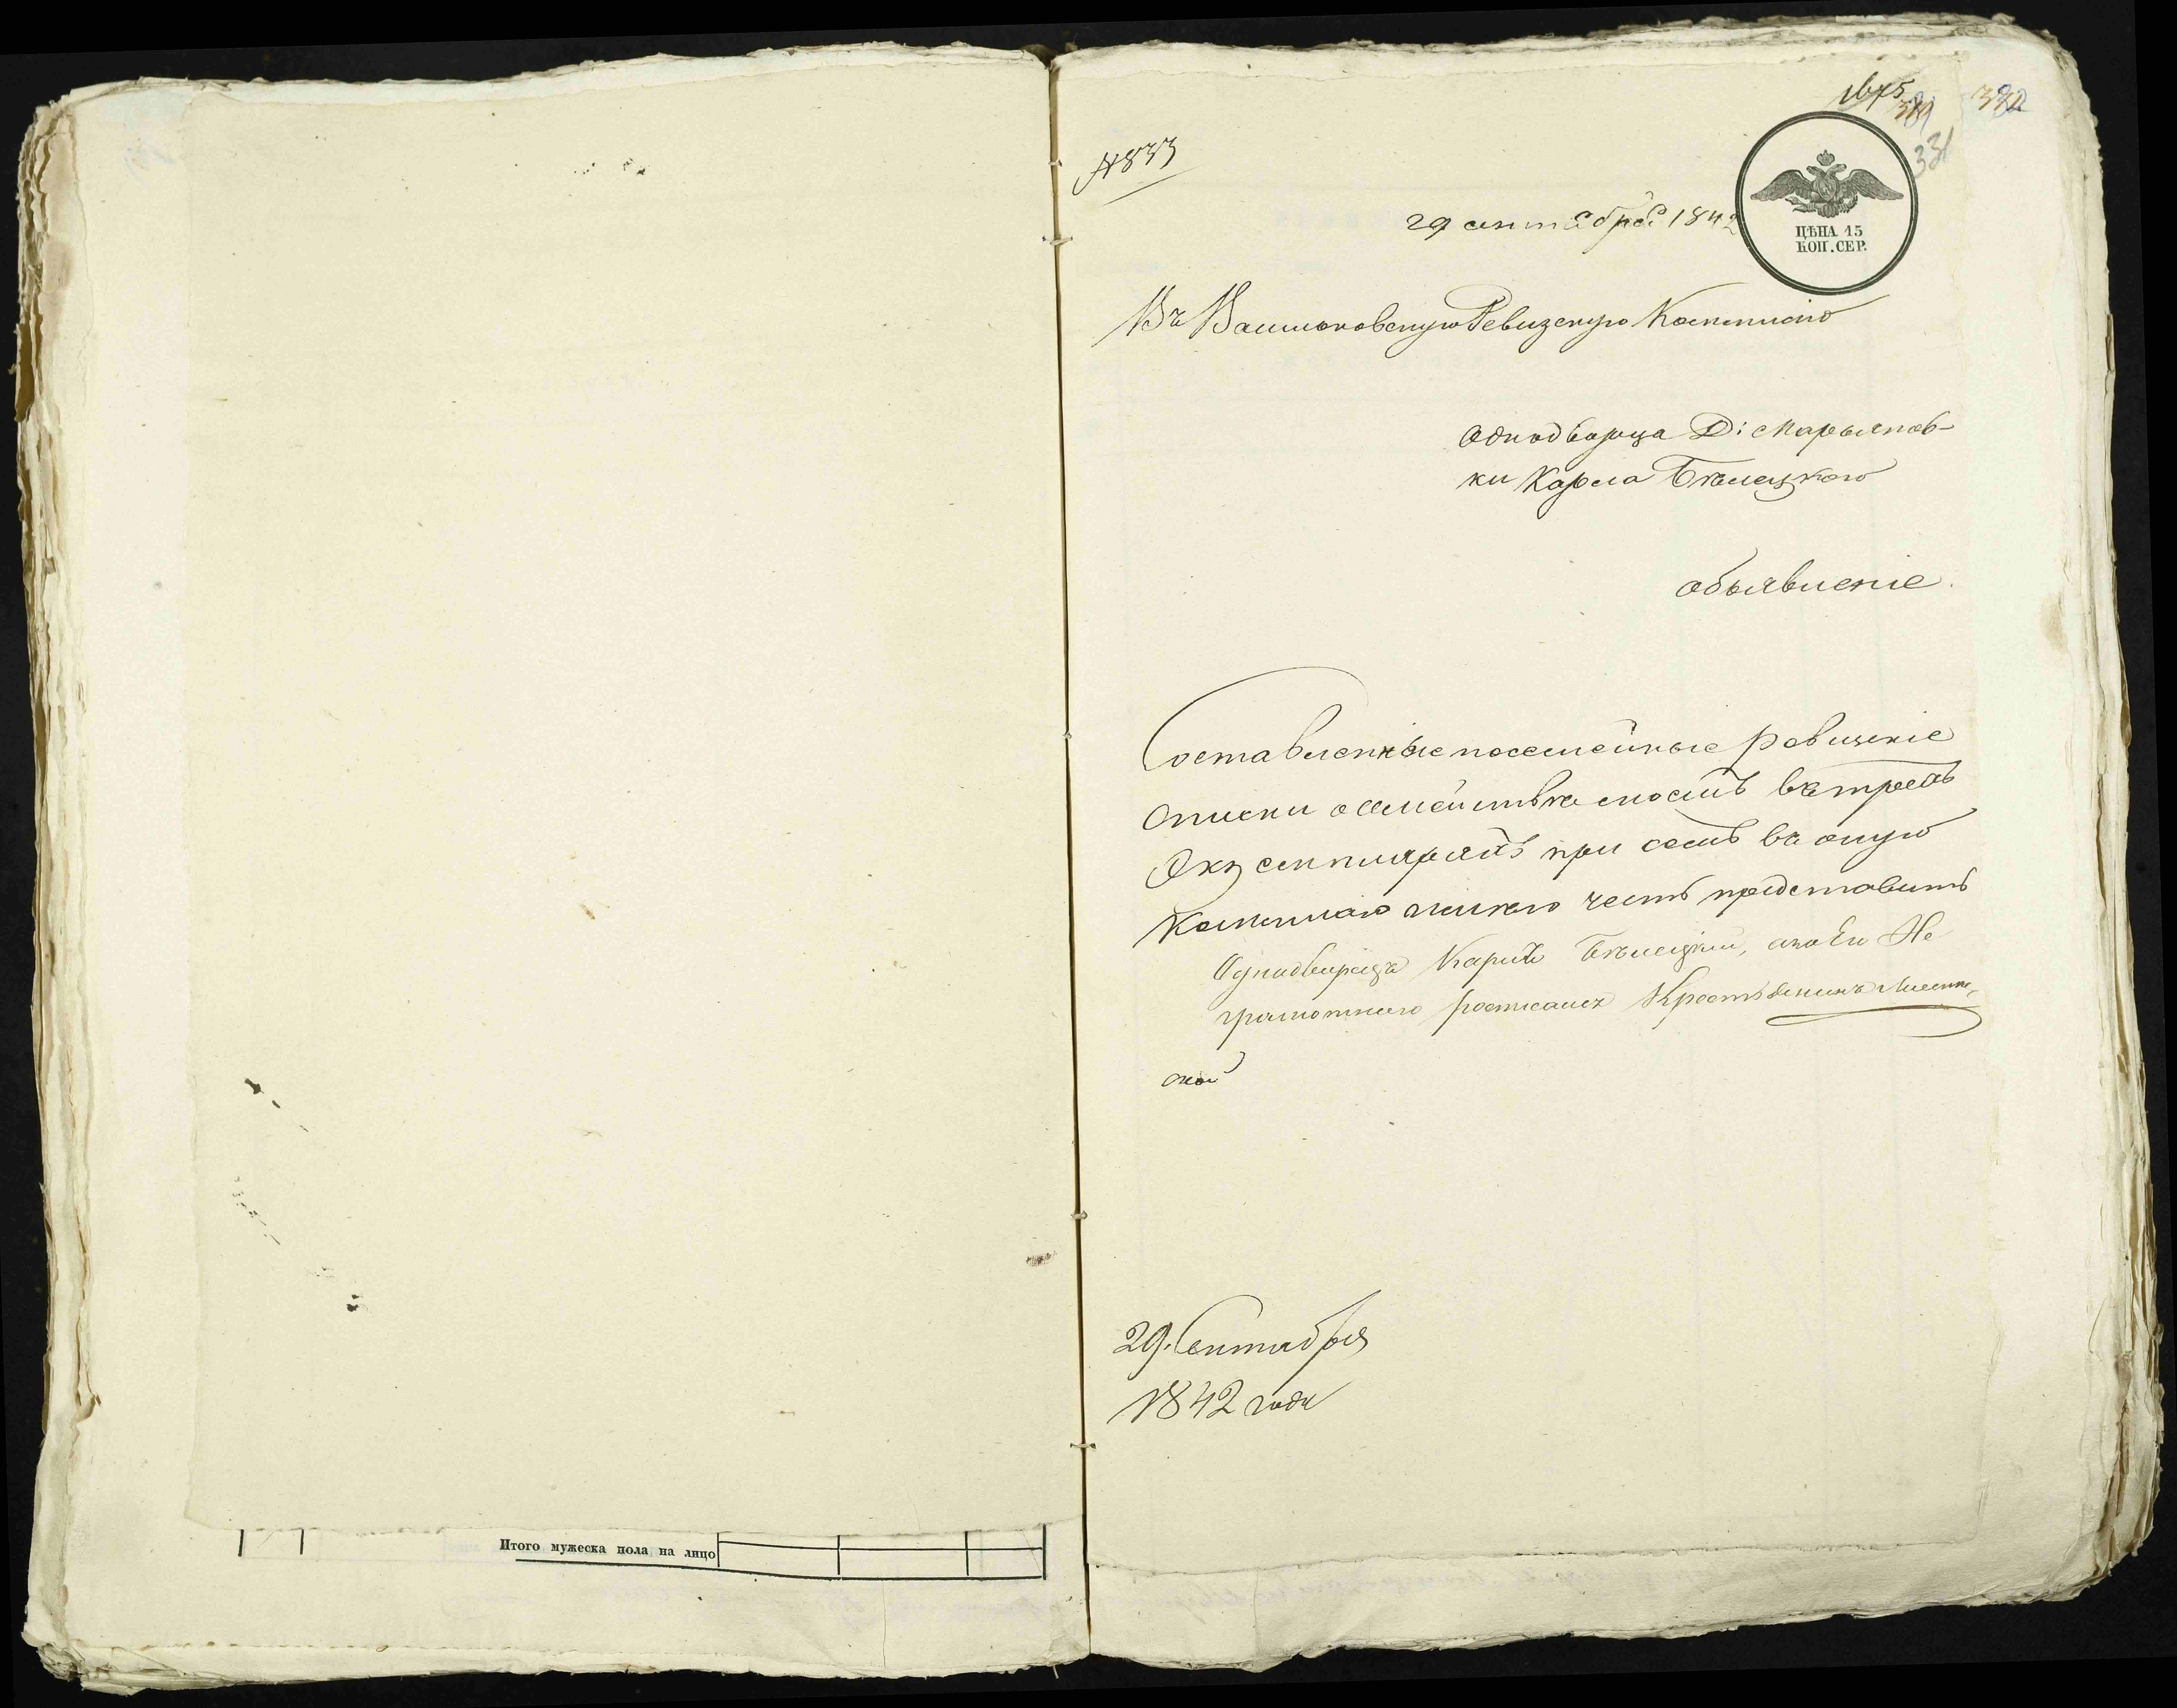 Итого мужеска пола на лицо
1675
381
382
331
№833
29 сентября 1842
ЦѢНА 15
КОП. СЕР.
Въ Васильковскую Ревизскую Коммисію
Однодворца Д: Марьянов-
ки Карла Бѣлецкого
объявленіе.
Составленные посемейные ревизскіе
списки о семействѣ моемъ въ трехъ
Экземплярахъ при семъ въ оную
Коммисію имѣю честь представить
Однодворецъ Карлъ Бѣлецкій, а по Его Не
грамотного росписался Крестьянинъ
29. Сентября
1842 года